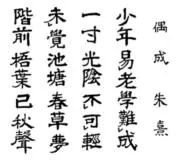 偶成 朱熹
少年易老学難成
一寸光陰不可輕
未覺池塘春草夢
階前梧葉已秋聲